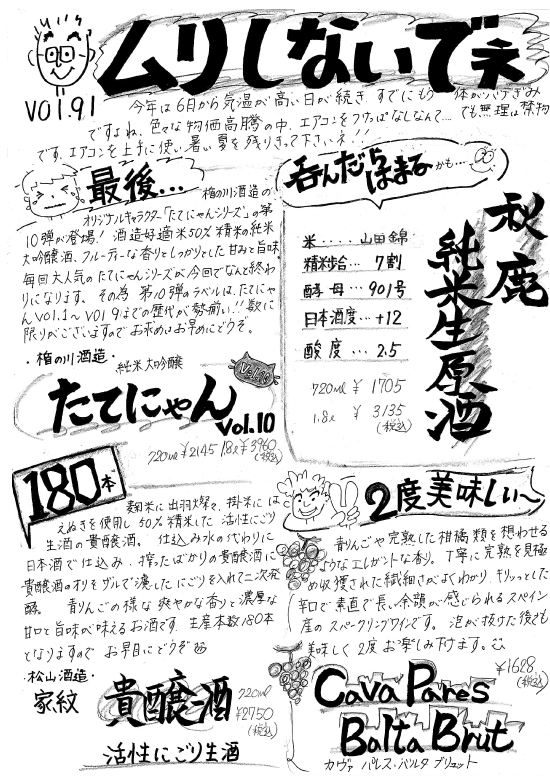 ムリしないでネ
VOl.91
今年は6月から気温が高い日が続き、すでにもう 体がバテぎみ
ですよね、色々な物価高騰の中、エアコンをつけっぱなしなんて… でも無理は禁物
です、エアコンを上手に使い、暑い夏を乗りきって下さいネ!!
最後…
楯の川酒造の
オリジナルキャラクター「たてにゃんシリーズ」の第
10弾が登場! 酒造好適米50%精米の純米
大吟醸酒、フルーティーな香りとしっかりとした甘みと旨味
毎回大人気のたてにゃんシリーズが今回でなんと終わ
りになります、その為 第10弾のラベルは、たてにゃ
んVOl.1〜VOl9までの歴代が勢揃い!! 数に
限りがございますのでお求めはお早めにどうぞ。
・楯の川酒造・
純米大吟醸
Vol.10
たてにゃん Vol.10
720ml ¥2145 1.8l ¥3960
(税込)
呑んだらはまる かも…
秋鹿
純米生原酒
米.....山田錦
精米歩合... 7割
酵母...901号
日本酒度...+12
酸度... 2.5
720ml ¥1705
1.8l ¥3135
(税込)
180本
麹米に出羽燦々、掛米には
はえぬきを使用し60%精米した活性にごり
生酒の貴醸酒。 仕込み水の代わりに
日本酒で仕込み、搾ったばかりの貴醸酒に
貴醸酒のオリをザルで漉したにごりを入れて二次発
酵。 青りんごの様な爽やかな香りと濃厚な
甘口と旨味が味えるお酒です、生産本数180本
となりますので お早目にどうぞ
・松山酒造・
家紋
貴醸酒
720ml
¥2750
(税込)
活性にごり生酒
2度美味しい〜
青りんごや完熟した柑橘類を想わせる
ようなエレガントな香り。丁寧に完熟を見極
め収穫された繊細さがよくわかり、キリッとした
辛口で素直で長い余韻が感じられるスペイン
産のスパークリングワインです。 泡が抜けた後でも
美味しく2度お楽しみ下げます。
¥1628
(税込)
Cava Pares
Balta Brut
カヴァ パレス・バルタ ブリュット